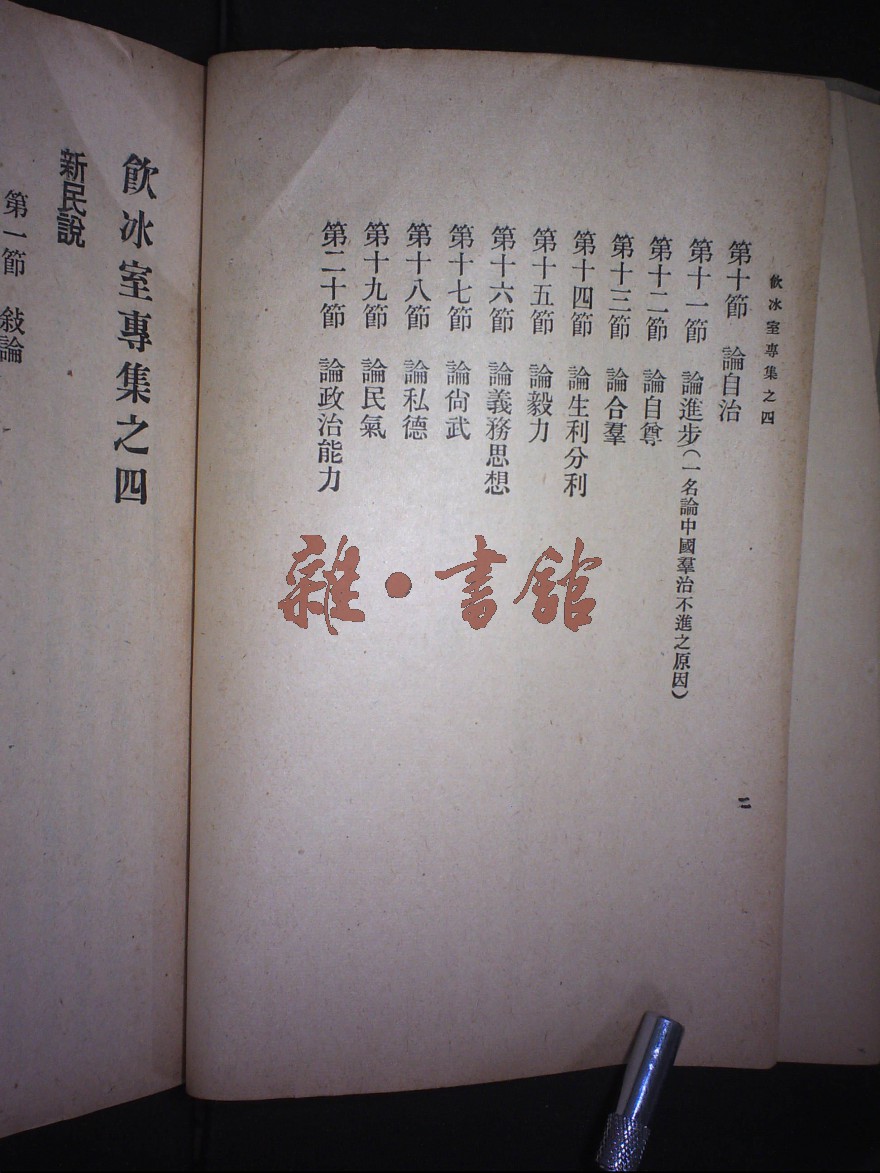 飲冰室專集之四
第十節　論自治
第十一節　論進步（一名論中國羣治不進之原因）
第十二節　論自尊
第十三節　論合羣
第十四節　論生利分利
第十五節　論毅力
第十六節　論義務思想
第十七節　論尙武
第十八節　論私德
第十九節　論民氣
第二十節　論政治能力
二
飲冰室專集之四
新民說
第一節　敍論
雜·書館